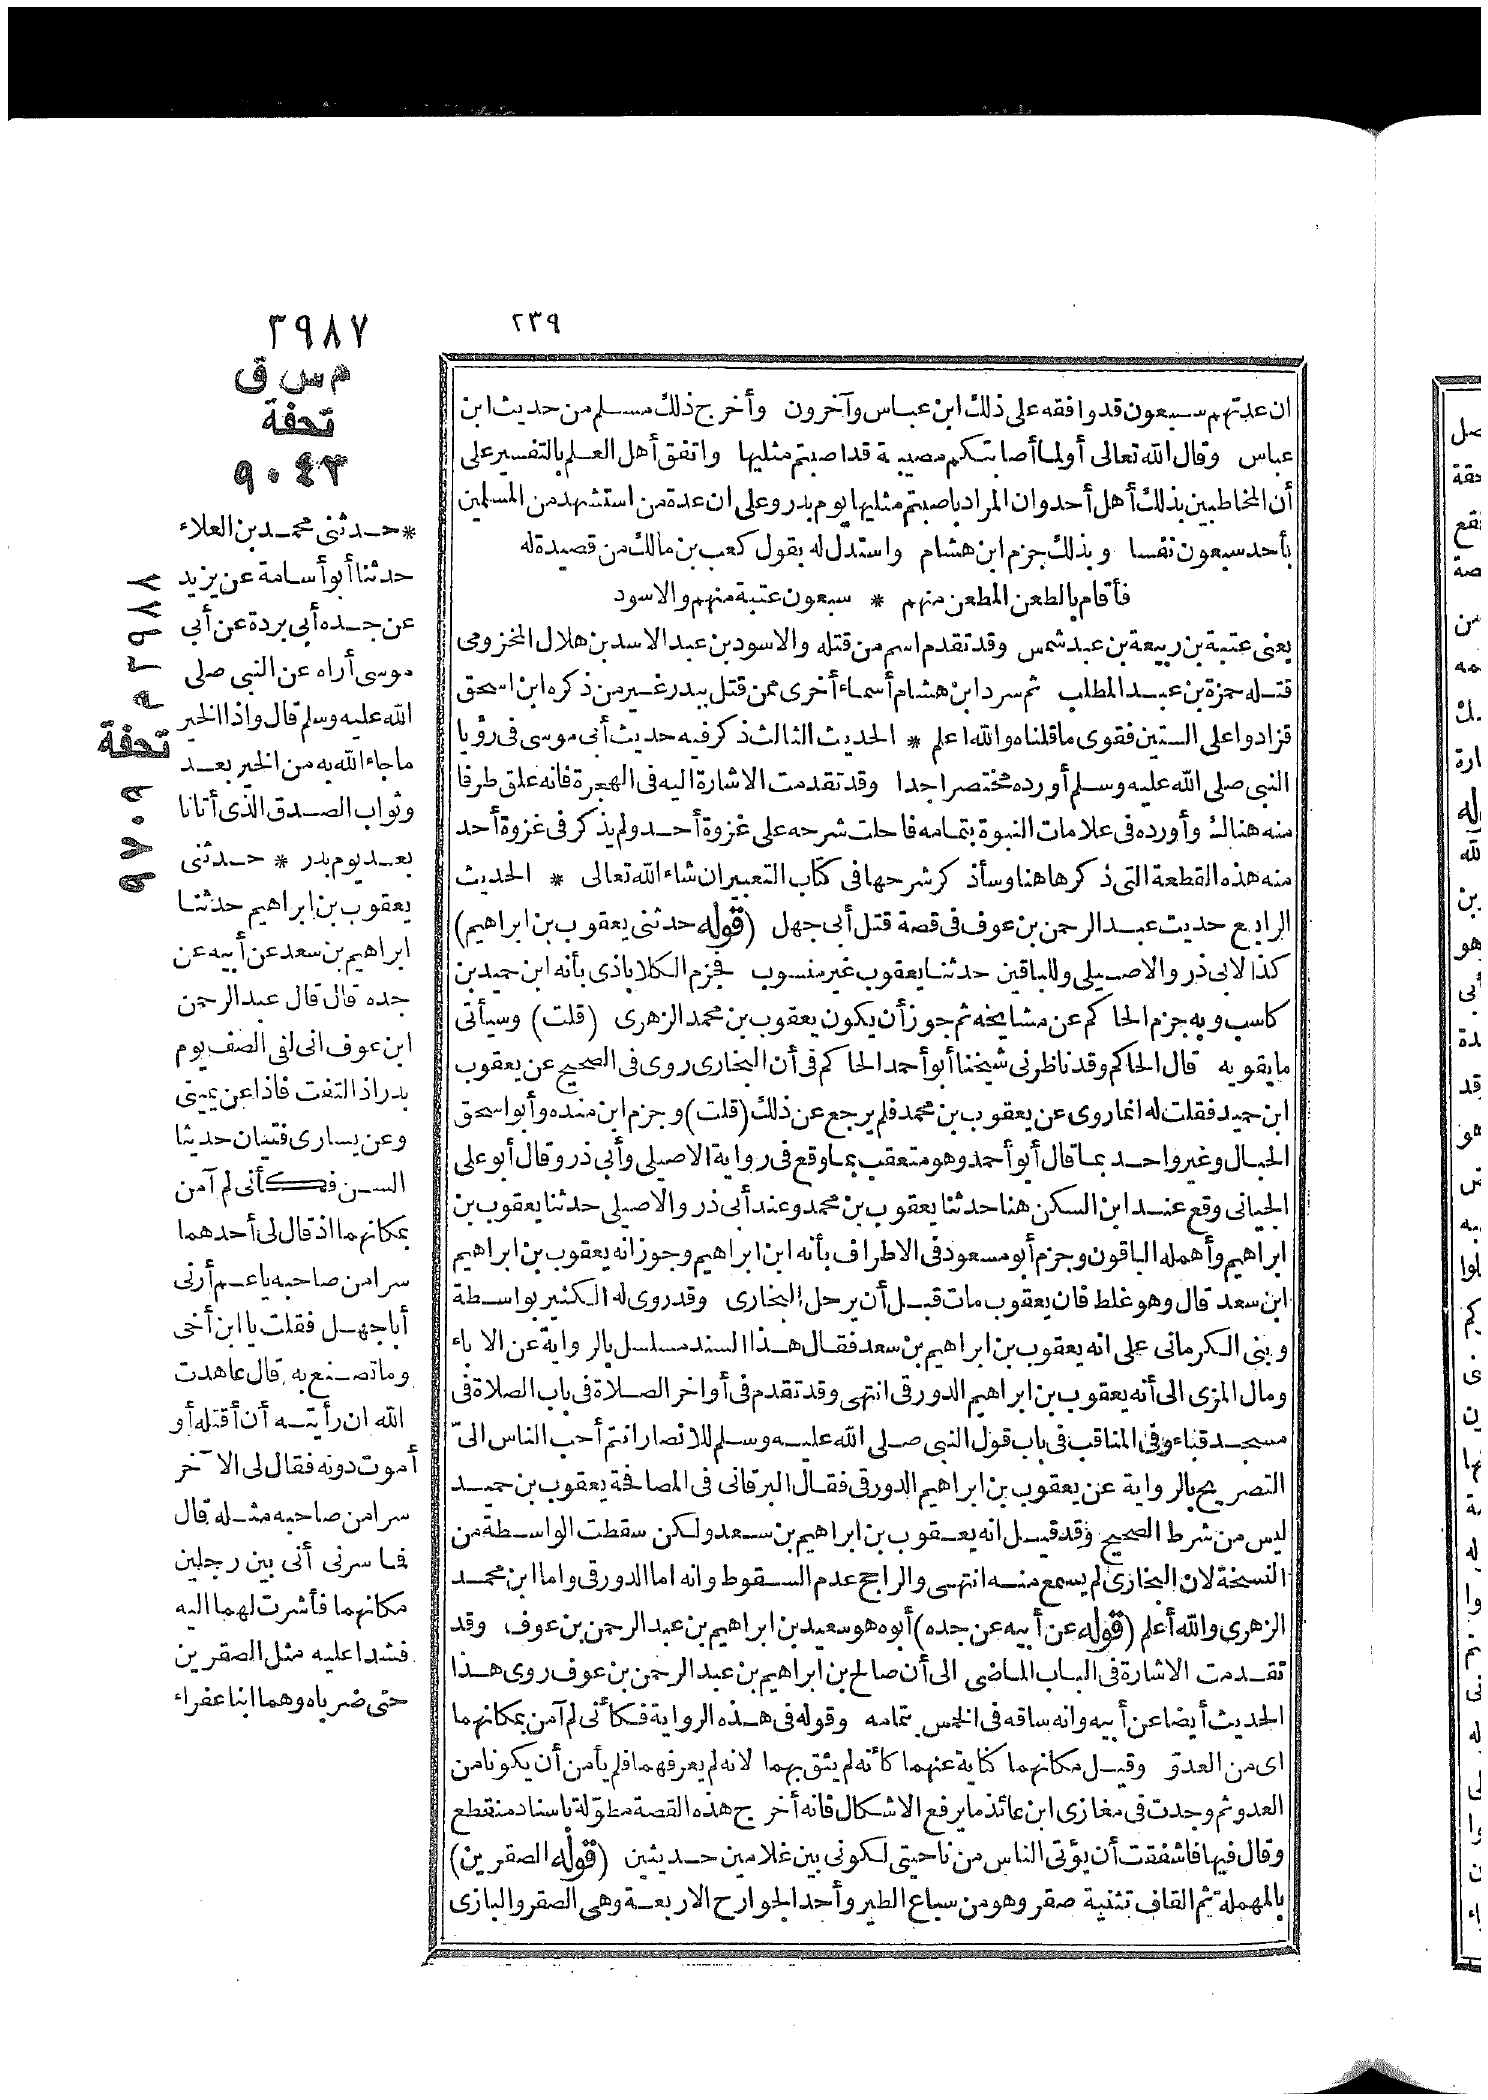 ٢٣٩
ان عدتهم سبعون قد وافقه على ذلك ابن عباس وآخرون وأخرج ذلك مسلم من حديث ابن
عباس وقال الله تعالى أولما أصابتكم مصيبة قد اصبتم مثليها واتفق أهل العلم بالتفسير على
أن المخاطبين بذلك أهل أحد وان المراد باصبتم مثليها يوم بدر وعلى ان عدة من استشهد من المسلمين
بأحد سبعون نفسا وبذلك جزم ابن هشام واستدل له بقول كعب بن مالك من قصيدة له
فأقام بالطعن المطعن منهم * سبعون عتبة منهم والاسود
يعنى عتبة بن ربيعة بن عبد شمس وقد تقدم اسم من قتله والاسود بن عبد الاسد بن هلال المخزومى
قتله حمزة بن عبد المطلب ثم سرد ابن هشام أسماء أخرى ممن قتل ببدر غير من ذكره ابن اسحق
فزادوا على الستين فقوى ما قلناه والله اعلم * الحديث الثالث ذكر فيه حديث أبى موسى فى رؤيا
النبى صلى الله عليه وسلم أورده مختصرا جدا وقد تقدمت الاشارة اليه فى الهجرة فانه علق طرفا
منه هنالك وأورده فى علامات النبوة بتمامه فاحلت شرحه على غزوة أحد ولم يذكر فى غزوة أحد
منه هذه القطعة التى ذكرها هنا وسأذكر شرحها فى كتاب التعبير ان شاء الله تعالى * الحديث
الرابع حديث عبد الرحمن بن عوف فى قصة قتل أبى جهل (قوله حدثنى يعقوب بن ابراهيم)
كذا لابى ذر والاصيلى وللباقين حدثنا يعقوب غير منسوب فجزم الكلاباذى بأنه ابن حميد بن
كاسب وبه جزم الحاكم عن مشايخه ثم جوز أن يكون يعقوب بن محمد الزهرى (قلت) وسيأتى
ما يقويه قال الحاكم وقد ناظرنى شيخنا أبو أحمد الحاكم فى أن البخارى روى فى الصحيح عن يعقوب
ابن حميد فقلت له انما روى عن يعقوب بن محمد فلم يرجع عن ذلك (قلت) وجزم ابن منده وأبو اسحق
الحبال وغير واحد بما قال أبو أحمد وهو متعقب بما وقع فى رواية الاصيلى وأبى ذر وقال أبو على
الجيانى وقع عند ابن السكن هنا حدثنا يعقوب بن محمد وعند أبى ذر والاصيلى حدثنا يعقوب بن
ابراهيم وأهمله الباقون وجزم أبو مسعود فى الاطراف بأنه ابن ابراهيم وجوز انه يعقوب بن ابراهيم
ابن سعد قال وهو غلط فان يعقوب مات قبل أن يرحل البخارى وقد روى له الكثير بواسطة
وبنى الكرمانى على انه يعقوب بن ابراهيم بن سعد فقال هذا السند مسلسل بالرواية عن الاباء
ومال المزى الى أنه يعقوب بن ابراهيم الدورقى انتهى وقد تقدم فى أواخر الصلاة فى باب الصلاة فى
مسجد قباء وفى المناقب فى باب قول النبى صلى الله عليه وسلم للانصار انتم أحب الناس الىّ
التصريح بالرواية عن يعقوب بن ابراهيم الدورقى فقال البرقانى فى المصافحة يعقوب بن حميد
ليس من شرط الصحيح وقد قيل انه يعقوب بن ابراهيم بن سعد ولكن سقطت الواسطة من
النسخة لان البخارى لم يسمع منه انتهى والراجح عدم السقوط وانه اما الدورقى واما ابن محمد
الزهرى والله أعلم (قوله عن أبيه عن جده) أبوه هو سعيد بن ابراهيم بن عبد الرحمن بن عوف وقد
تقدمت الاشارة فى الباب الماضى الى أن صالح بن ابراهيم بن عبد الرحمن بن عوف روى هذا
الحديث أيضا عن أبيه وانه ساقه فى الخمس بتمامه وقوله فى هذه الرواية فكأنى لم آمن بمكانهما
اى من العدوّ وقيل مكانهما كناية عنهما كأنه لم يثق بهما لانه لم يعرفهما فلم يأمن أن يكونا من
العدو ثم وجدت فى مغازى ابن عائذ ما يرفع الاشكال فانه أخرج هذه القصة مطوّلة باسناد منقطع
وقال فيها فاشفقت أن يؤتى الناس من ناحيتى لكونى بين غلامين حديثين (قوله الصقرين)
بالمهملة ثم القاف تثنية صقر وهو من سباع الطير وأحد الجوارح الاربعة وهى الصقر والبازى
٣٩٨٧
م س ق
تحفة
٩٠٤٣
* حدثنى محمد بن العلاء
حدثنا أبو أسامة عن بريد
عن جده أبى بردة عن أبى
موسى أراه عن النبى صلى
الله عليه وسلم قال واذا الخير
ما جاء الله به من الخير بعد
وثواب الصدق الذى أتانا
بعد يوم بدر * حدثنى
يعقوب بن ابراهيم حدثنا
ابراهيم بن سعد عن أبيه عن
جده قال قال عبد الرحمن
ابن عوف انى لفى الصف يوم
بدر اذ التفت فاذا عن يمينى
وعن يسارى فتيان حديثا
السن فكأنى لم آمن
بمكانهما اذ قال لى أحدهما
سرا من صاحبه يا عم أرنى
أبا جهل فقلت يا ابن أخى
وما تصنع به قال عاهدت
الله ان رأيته أن أقتله أو
أموت دونه فقال لى الآخر
سرا من صاحبه مثله قال
فما سرنى أنى بين رجلين
مكانهما فأشرت لهما اليه
فشدا عليه مثل الصقرين
حتى ضرباه وهما ابنا عفراء
٣٩٨٨ م
تحفة
٩٧٠٩